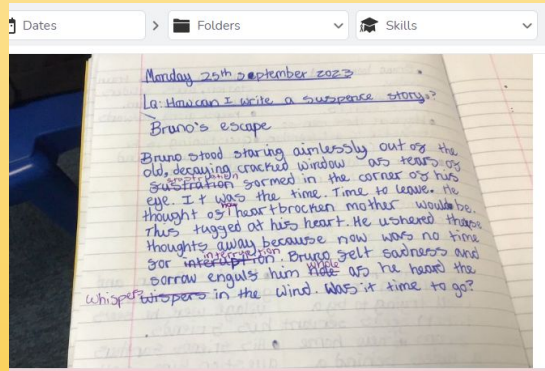 Dates
Folders
Skills
Monday 25th september 2023
LQ: How can I write a suspense story?
Bruno's escape
Bruno stood staring aimlessly out of the
old, decaying cracked window as tears of
frustration
formed in the corner of his
eye. It was the time. Time to leave. He
how
thought of heartbrocken mother would be.
This tugged at his heart. He ushered these
thoughts away because now was no time
interruption
for interuption. Bruno felt sadness and
whole
sorrow engulf him as he heard the
whispers wispers in the wind. Was it time to go?